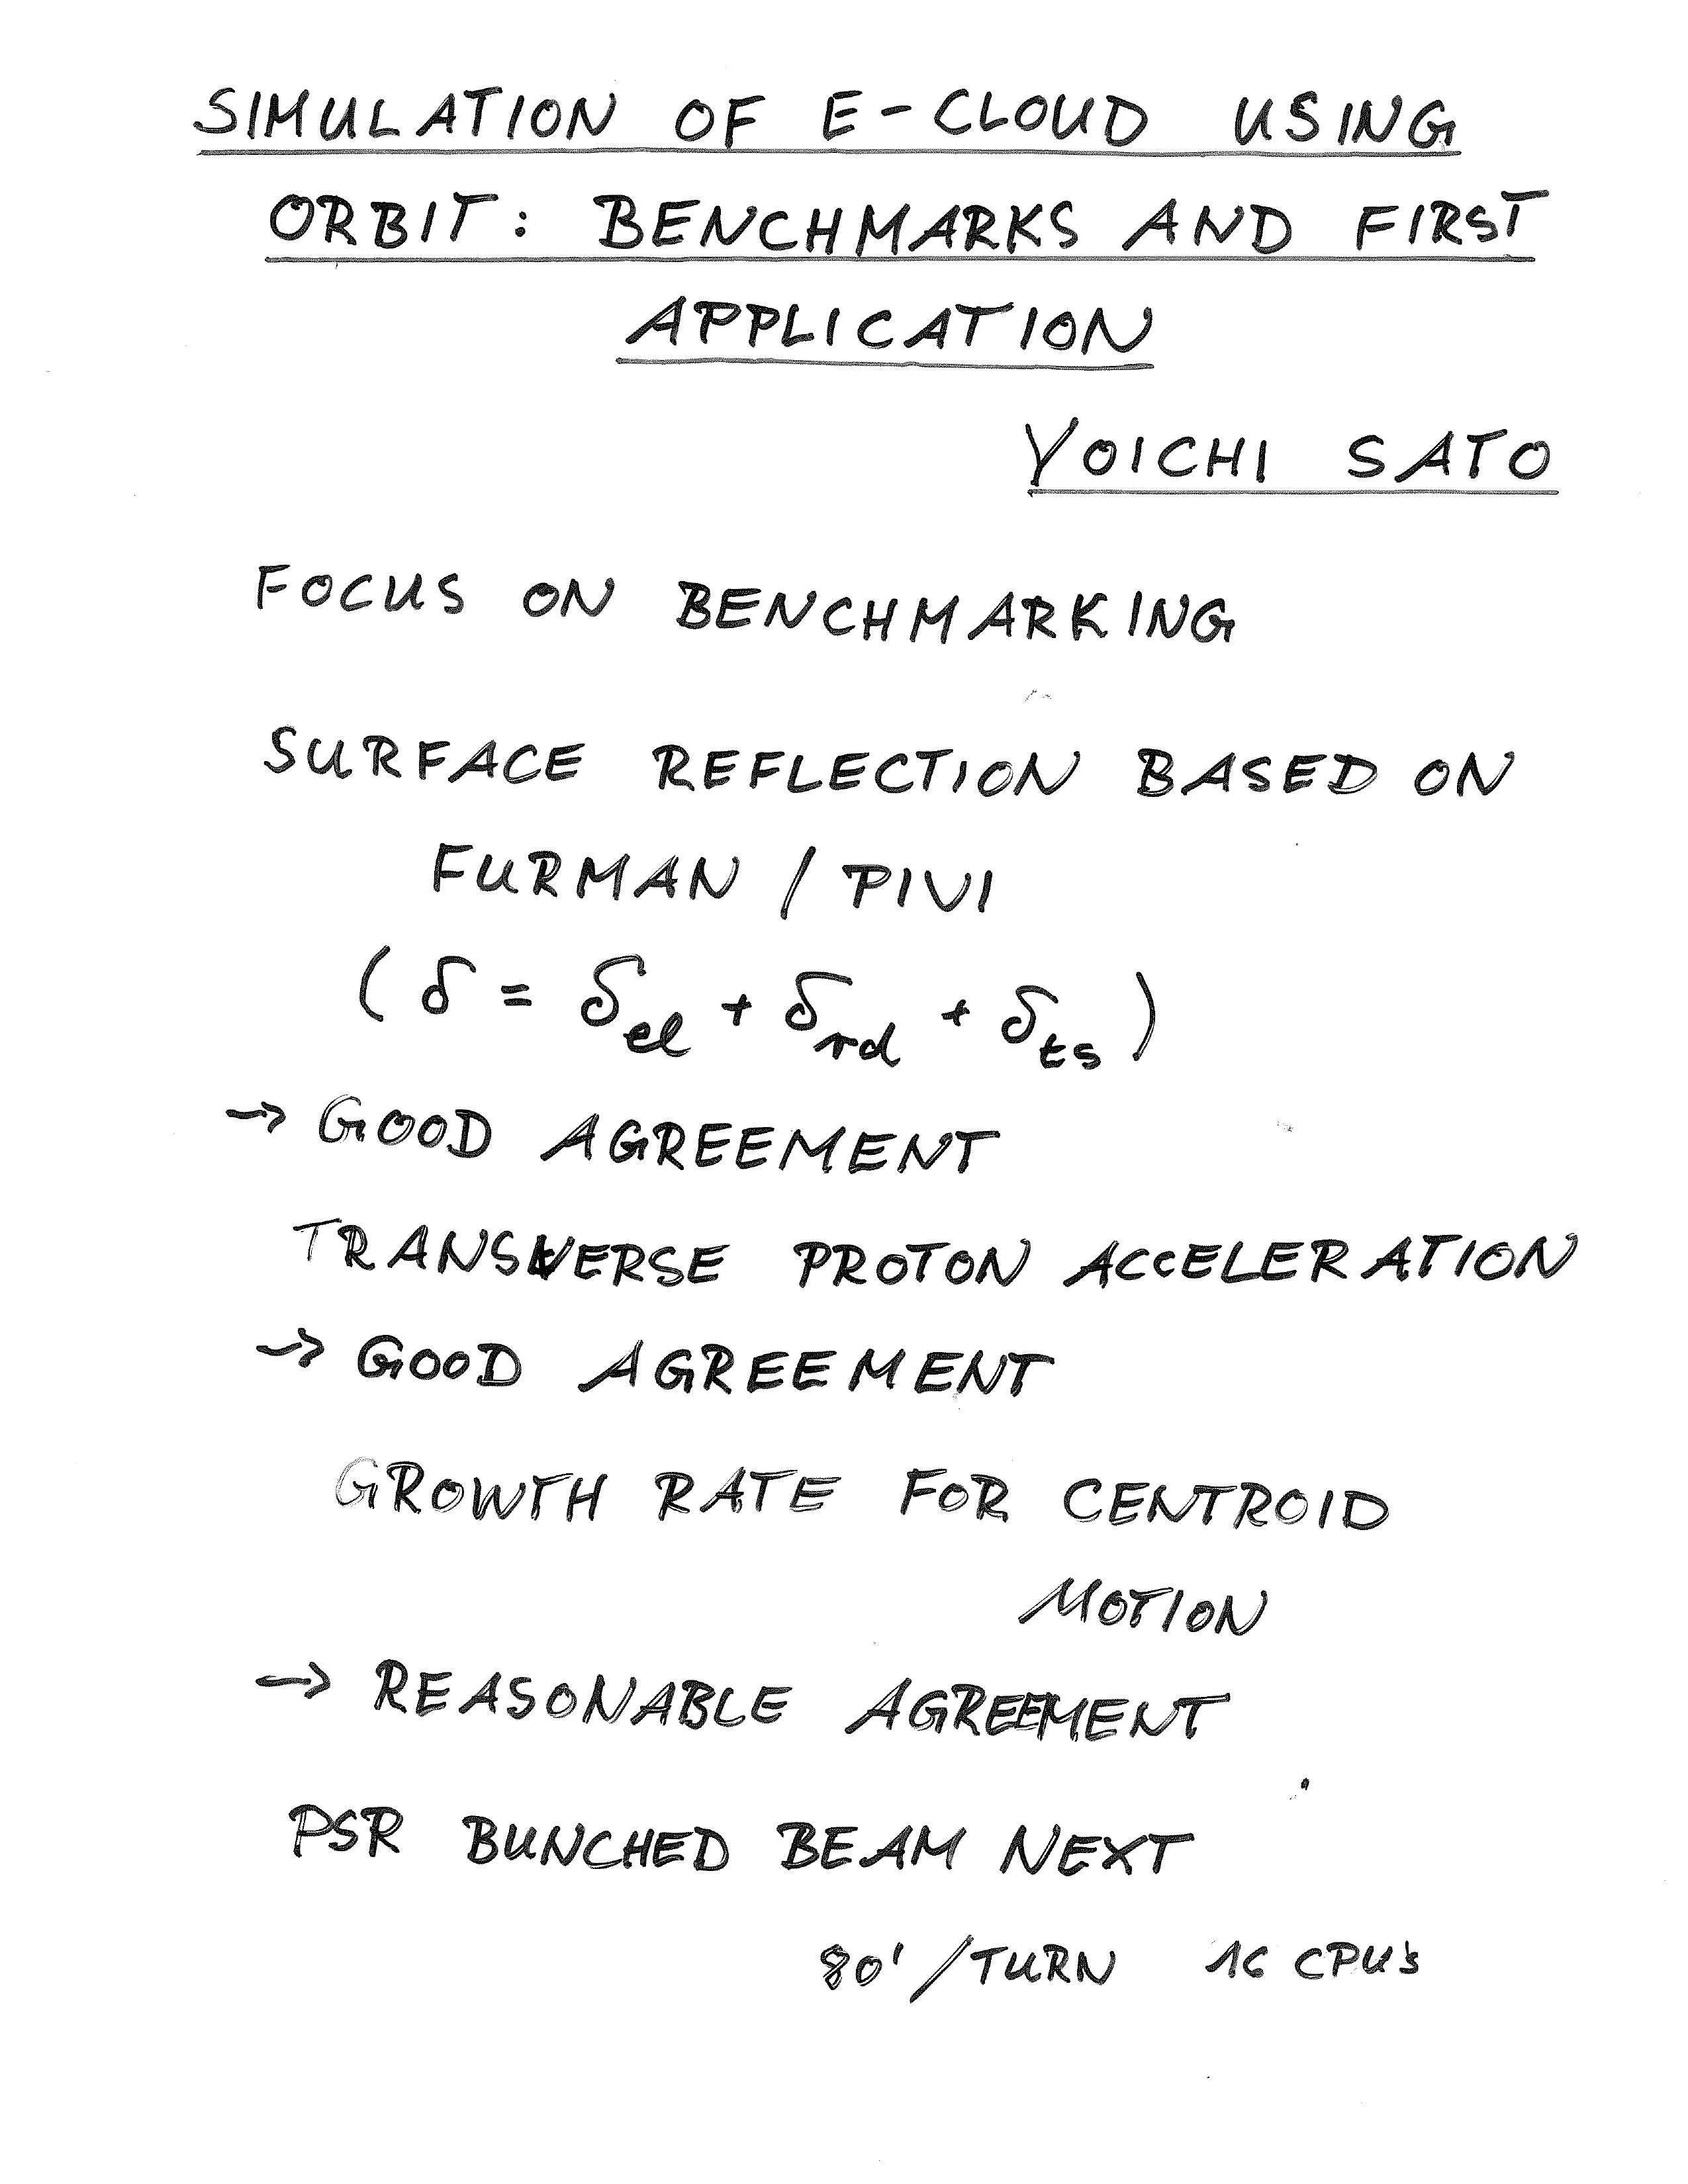 SIMULATION OF E-CLOUD USING
ORBIT: BENCHMARKS AND FIRST
APPLICATION
YOICHI SATO
FOCUS ON BENCHMARKING
SURFACE REFLECTION BASED ON
FURMAN / PIVI
( δ = δel + δrd + δts )
→ GOOD AGREEMENT
TRANSVERSE PROTON ACCELERATION
→ GOOD AGREEMENT
GROWTH RATE FOR CENTROID
MOTION
→ REASONABLE AGREEMENT
PSR BUNCHED BEAM NEXT
80' /TURN 16 CPU's